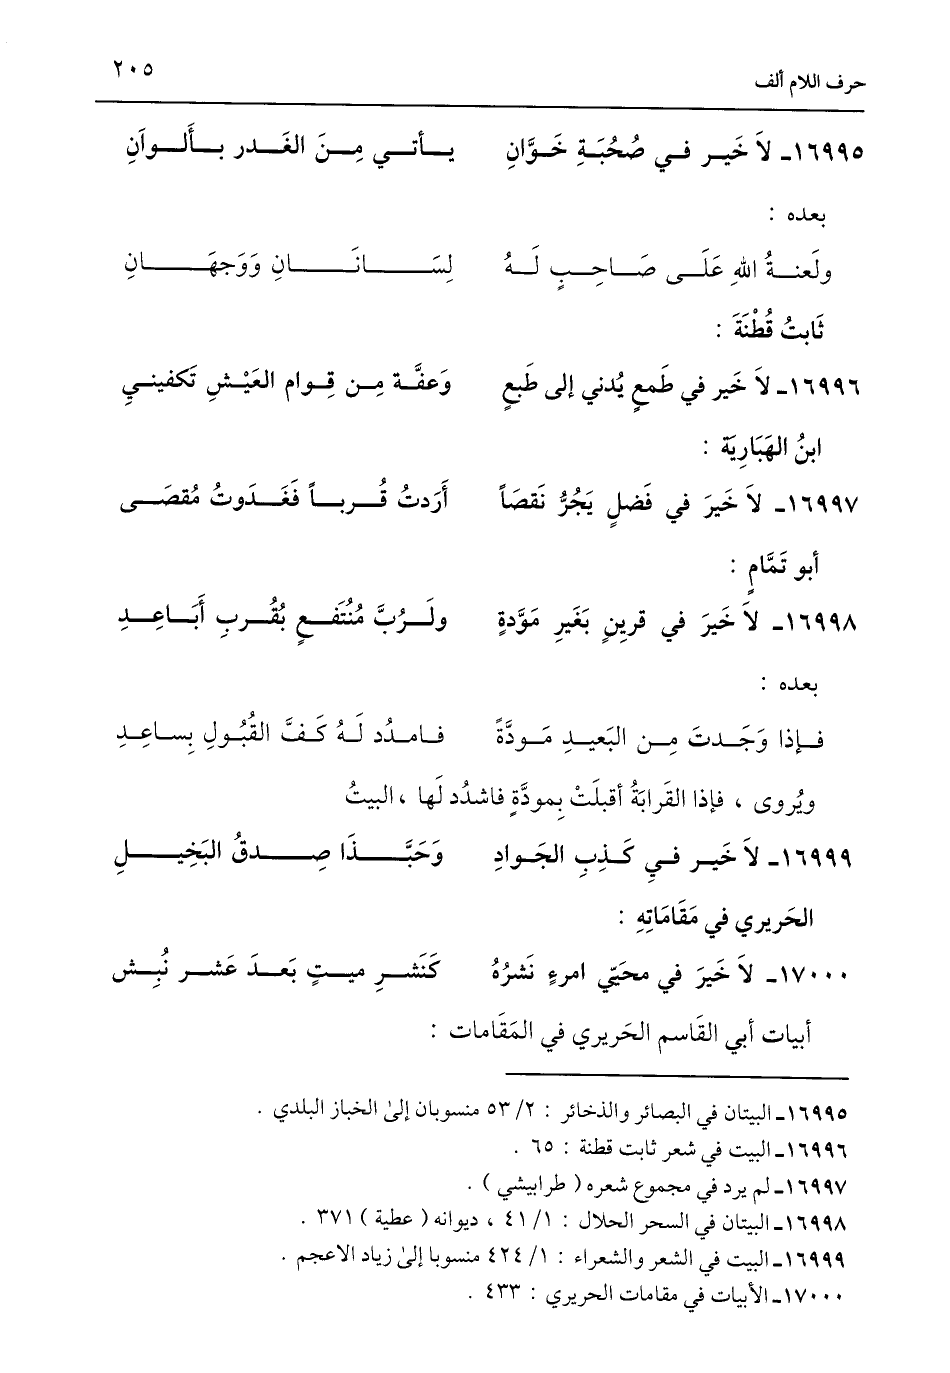 حرف اللام ألف ٢٠٥
١٦٩٩٥ـ لاَ خَير في صُحُبَةِ خَوَّانِ يأتي مِنَ الغَدر بألوآنِ
بعده :
ولَعنةُ اللهِ عَلَى صَاحِبٍ لَهُ لِسَانَانِ وَوَجهَانِ
ثَابتُ قُطْنَةَ :
١٦٩٩٦ـ لاَ خَير في طَمعٍ يُدني إلى طَبعٍ وَعفَّة مِن قِوام العَيْشِ تَكفيني
ابنُ الهَبَارِيَة :
١٦٩٩٧ـ لاَ خَيرَ في فَضلٍ يَجُرُّ نَقصَاً أَردتُ قُرباً فَغَدَوتُ مُقصَى
أبو تَمَّامٍ :
١٦٩٩٨ـ لاَ خَيرَ في قرينٍ بَغَيرِ مَوَّدةٍ ولَرُبَّ مُنُتَفعٍ بُقُربِ أَبَاعِدِ
بعده :
فإذا وَجَدتَ مِن البَعيدِ مَودَّةً فامدُد لَهُ كَفَّ القُبُولِ بِساعِدِ
ويُروى ، فإذا القَرابَةُ أقبلَتْ بِمودَّةٍ فاشدُد لَها ، البيتُ
١٦٩٩٩ـ لاَ خَير في كَذِبِ الجَوادِ وَحَبَّذَا صِدقُ البَخِيلِ
الحَريري في مَقَامَاتِهِ :
١٧٠٠٠ـ لاَ خَيرَ في محَيّي امرءٍ نَشرُهُ كَنَشرِ ميتٍ بَعدَ عَشر نُبِش
أبيات أبي القَاسم الحَريري في المَقَامات :
١٦٩٩٥ـ البيتان في البصائر والذخائر : ٢/ ٥٣ منسوبان إلىٰ الخباز البلدي .
١٦٩٩٦ـ البيت في شعر ثابت قطنة : ٦٥ .
١٦٩٩٧ـ لم يرد في مجموع شعره ( طرابيشي ) .
١٦٩٩٨ـ البيتان في السحر الحلال : ١/ ٤١ ، ديوانه ( عطية ) ٣٧١ .
١٦٩٩٩ـ البيت في الشعر والشعراء : ١/ ٤٢٤ منسوبا إلىٰ زياد الاعجم .
١٧٠٠٠ـ الأبيات في مقامات الحريري : ٤٣٣ .